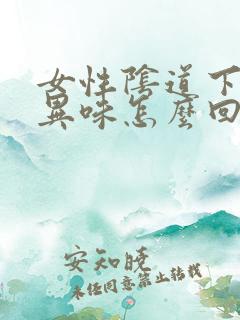 女性陰道下
異味怎麼回
安知曉
未經同意禁止轉載